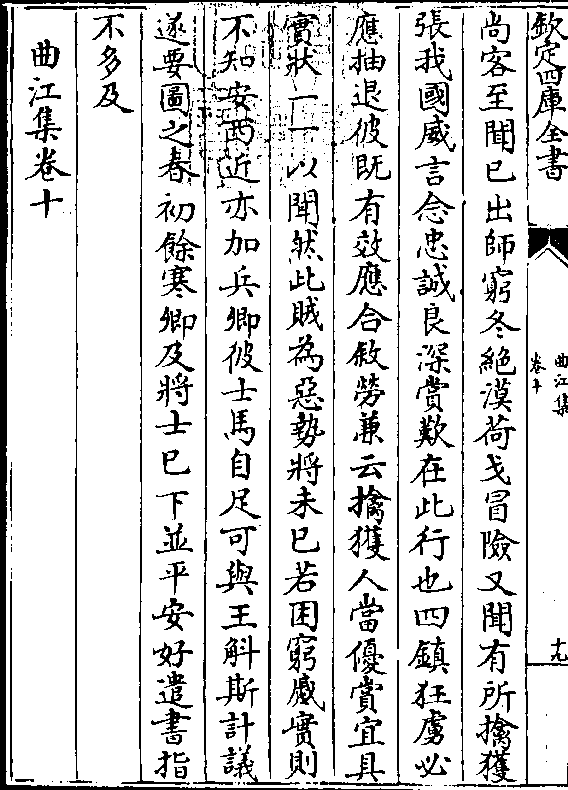 欽定四庫全書
曲江集
卷十
十九
尚客至聞已出師窮冬絶漠荷戈冒險又聞有所擒獲
張我國威言念忠誠良深賞歎在此行也四鎮狂虜必
應抽退彼既有效應合敘勞兼云擒獲人當優賞宜具
實狀一一以聞然此賊為惡勢將未已若困窮蹙實則
不知安西近亦加兵卿彼士馬自足可與王斛斯計議
遂要圖之春初餘寒卿及將士已下並平安好遣書指
不多及
曲江集卷十